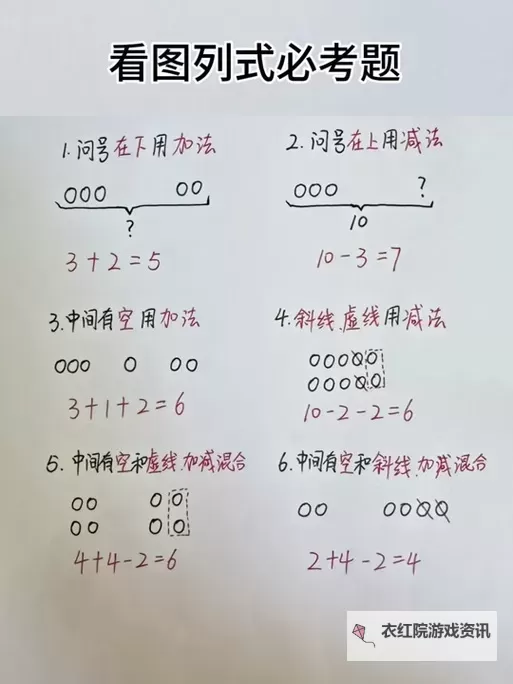 看图列式必考题
1.问号在下用加法
2.问号在上用减法
?
?
10
3+2=5
10-3=7
3.中间有空用加法
4.斜线、虚线用减法
3+1+2=6
10-2-2=6
5.中间有空和虚线,加减混合
6.中间有空和斜线,加减混合
4+4-2=6
2+4-2=4
衣红院游戏资讯